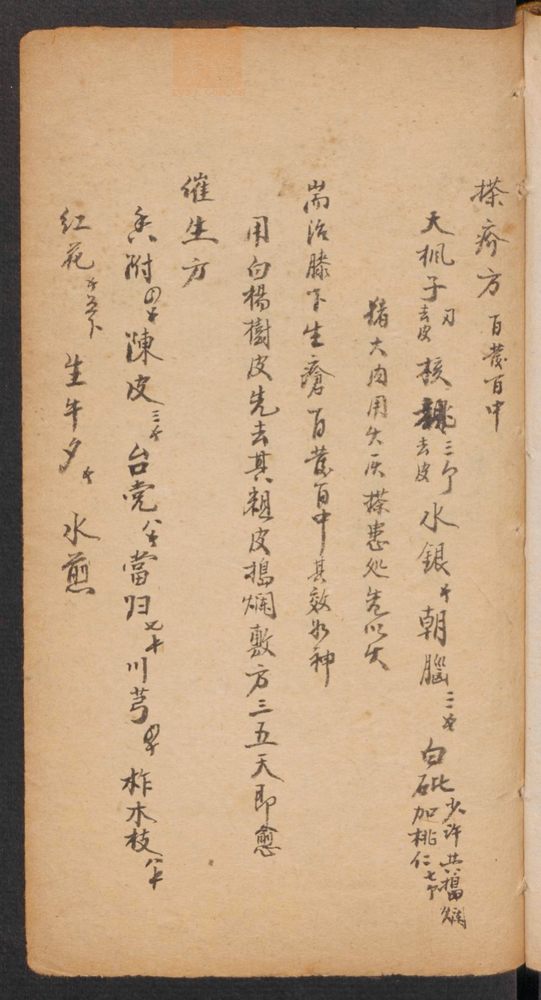 搽疥方 百發百中
大楓子去皮 核桃三个去皮 水銀 朝腦三 白砒少許共搗爛加桃仁七个
猪大肉用火灰搽患处先以火
耑治膝下生瘡百發百中其效如神
用白楊樹皮先去其粗皮搗爛敷方三五天即愈
催生方
香附四 陳皮三 台党 當归七 川芎 柞木枝
紅花 生牛夕 水煎